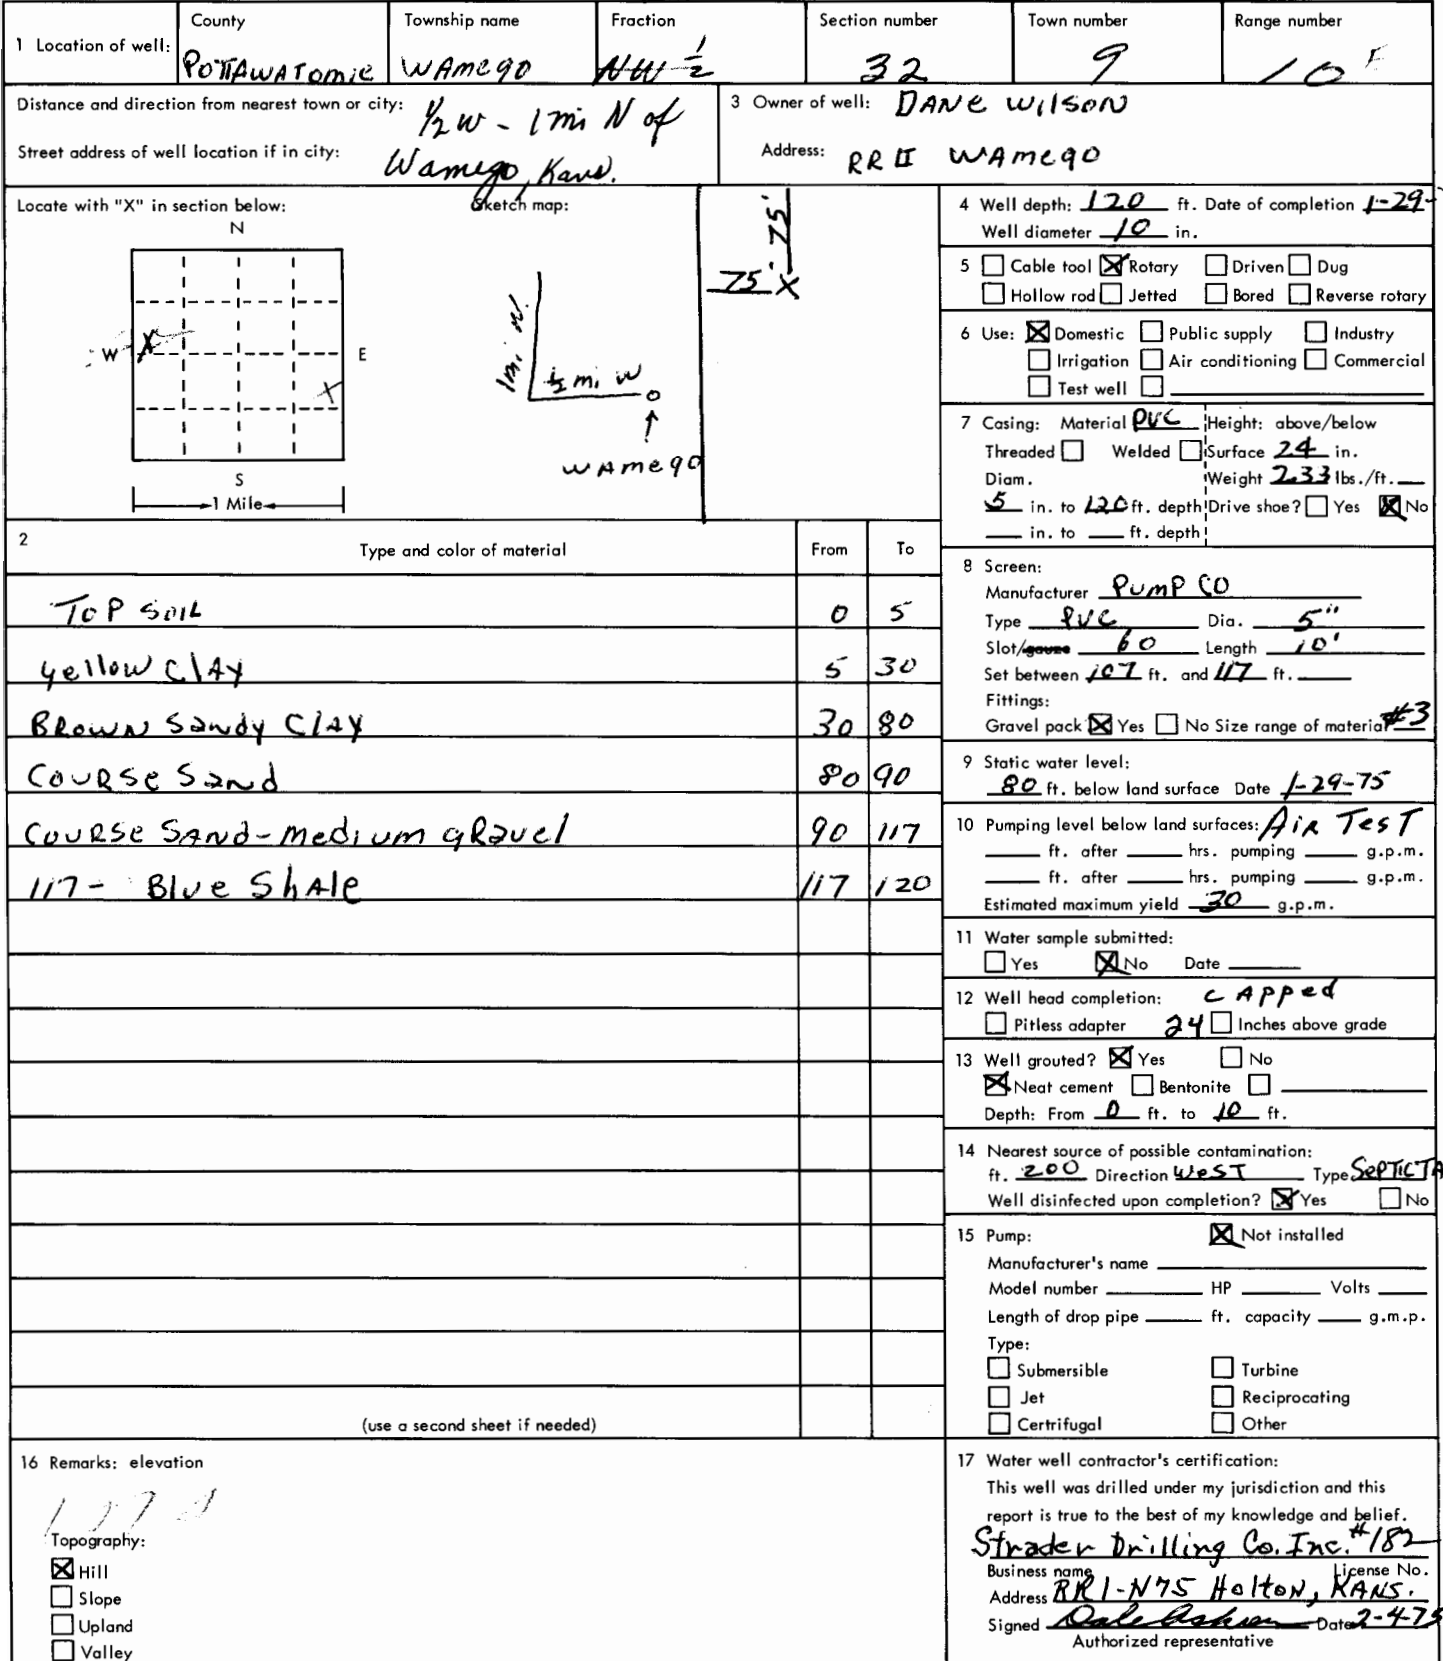 1 Location of well:
County
POTTAWATOMIE
Township name
WAMEGO
Fraction
NW 1/2
Section number
32
Town number
9
Range number
10 E
Distance and direction from nearest town or city: 1/2 W - 1 mi N of
Street address of well location if in city: Wamego, Kans.
3 Owner of well: DANE WILSON
Address: RR II WAMEGO
Locate with "X" in section below:
N
W X E
X
S
1 Mile
Sketch map:
1 mi N.
1/2 mi W
WAMEGO
75'
75' X
4 Well depth: 120 ft. Date of completion 1-29-
Well diameter 10 in.
5 Cable tool Rotary Driven Dug
Hollow rod Jetted Bored Reverse rotary
6 Use: Domestic Public supply Industry
Irrigation Air conditioning Commercial
Test well
7 Casing: Material PVC Height: above/below
Threaded Welded Surface 24 in.
Diam. Weight 2.33 lbs./ft.
5 in. to 120 ft. depth Drive shoe? Yes No
in. to ft. depth
2
Type and color of material From To
TOP SOIL 0 5
Yellow Clay 5 30
BROWN Sandy Clay 30 80
COURSE Sand 80 90
COURSE SAND-medium gravel 90 117
117- Blue Shale 117 120
(use a second sheet if needed)
8 Screen:
Manufacturer PUMP CO
Type PVC Dia. 5"
Slot/gauze 60 Length 10'
Set between 107 ft. and 117 ft.
Fittings:
Gravel pack Yes No Size range of material #3
9 Static water level:
80 ft. below land surface Date 1-29-75
10 Pumping level below land surfaces: AIR TEST
ft. after hrs. pumping g.p.m.
ft. after hrs. pumping g.p.m.
Estimated maximum yield 30 g.p.m.
11 Water sample submitted:
Yes No Date
12 Well head completion: CAPPed
Pitless adapter 24 Inches above grade
13 Well grouted? Yes No
Neat cement Bentonite
Depth: From 0 ft. to 10 ft.
14 Nearest source of possible contamination:
ft. 200 Direction WeST Type SePTIC TA
Well disinfected upon completion? Yes No
15 Pump: Not installed
Manufacturer's name
Model number HP Volts
Length of drop pipe ft. capacity g.m.p.
Type:
Submersible Turbine
Jet Reciprocating
Certrifugal Other
16 Remarks: elevation
Topography:
Hill
Slope
Upland
Valley
17 Water well contractor's certification:
This well was drilled under my jurisdiction and this
report is true to the best of my knowledge and belief.
Strader Drilling Co. Inc. #182
Business name License No.
Address RR1-N75 Holton, KANS.
Signed Date 2-4-75
Authorized representative